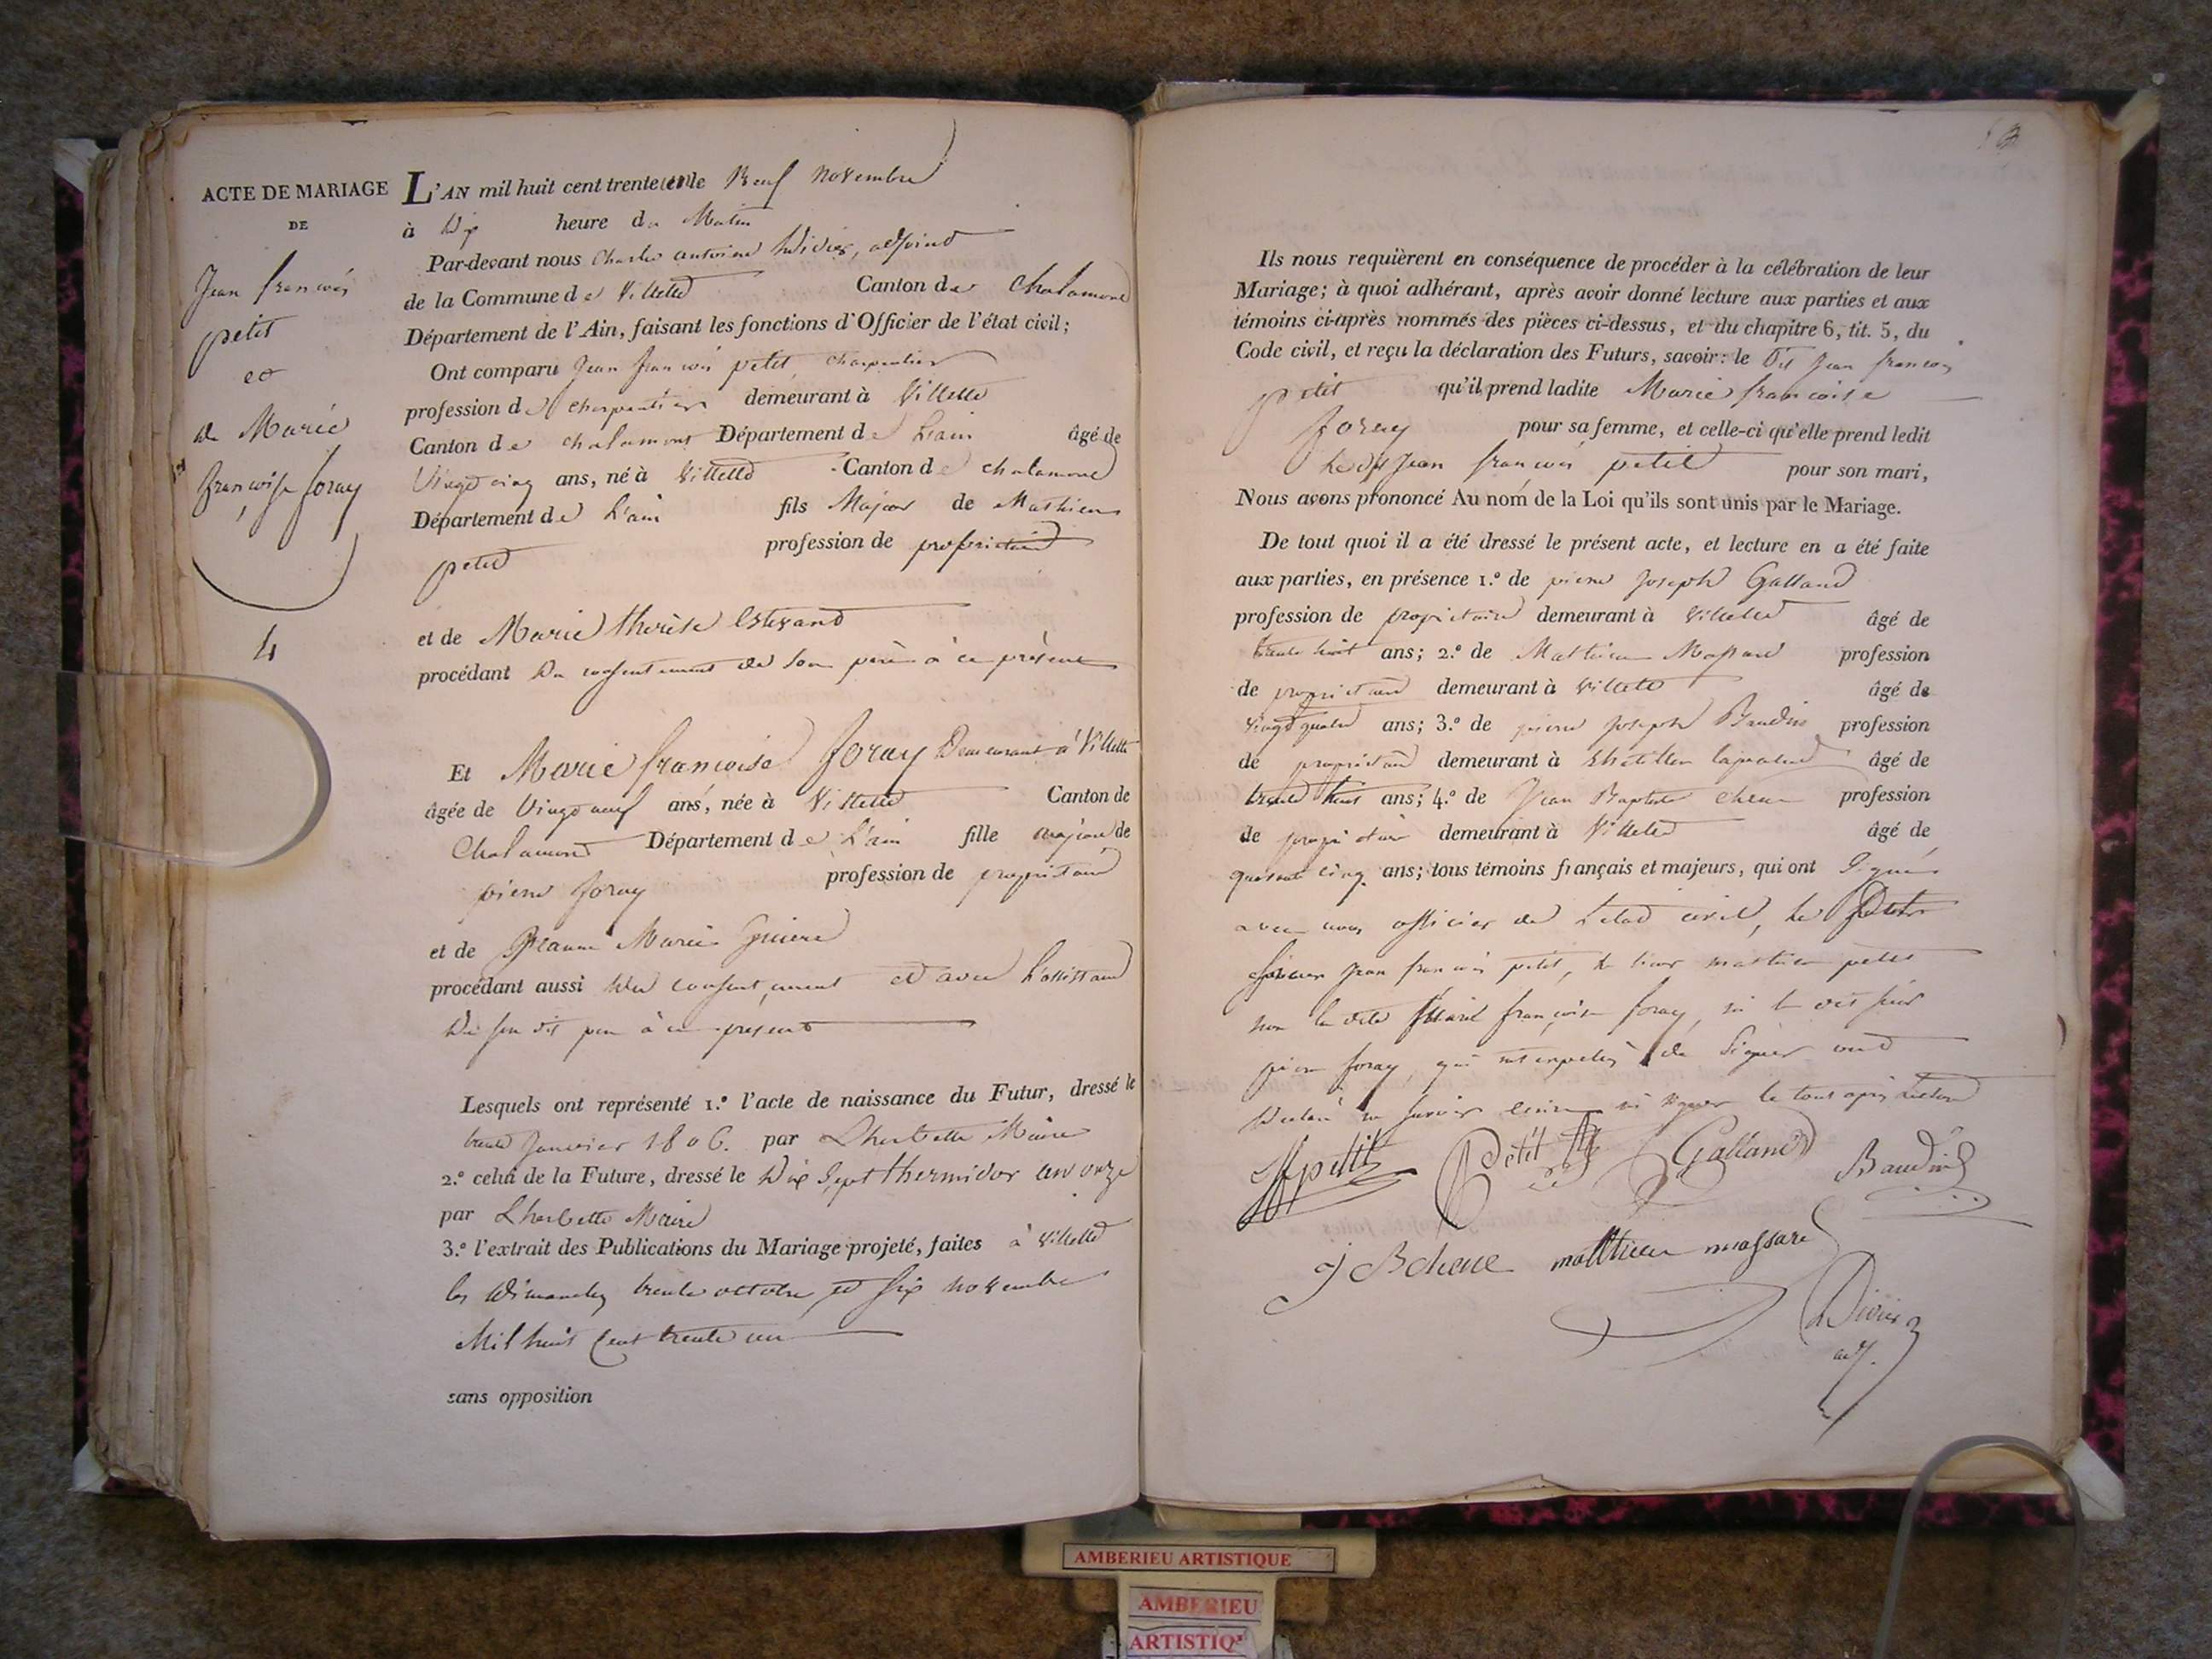 ACTE DE MARIAGE
DE
Jean françois
petit
et
de Marie
françoise foray
4
L'AN mil huit cent trente un le Neuf Novembre
à Dix heure du Matin
Par-devant nous Charles antoine Divier, adjoint
de la Commune de Villette Canton de Chalamont
Département de l'Ain, faisant les fonctions d'Officier de l'état civil;
Ont comparu Jean françois petit, charpentier
profession de charpentier demeurant à Villette
Canton de chalamont Département de L'ain âgé de
Vingt cinq ans, né à Villette Canton de chalamont
Département de L'ain fils Majeur de Mathieu
petit profession de propriétaire
et de Marie therèse Estevand
procédant Du consentement de son père à ce présent
Et Marie françoise foray Demeurant à Villette
âgée de Vingt neuf ans, née à Villette Canton de
Chalamont Département de L'ain fille majeure de
pierre foray profession de propriétaire
et de Jeanne Marie
procédant aussi Du consentement et avec L'assistance
De son dit père à ce présent
Lesquels ont représenté 1.º l'acte de naissance du Futur, dressé le
trente Janvier 1806. par Lherbette Maire
2.º celui de la Future, dressé le Dix Sept thermidor an onze
par Lherbette Maire
3.º l'extrait des Publications du Mariage projeté, faites à Villette
les Dimanches trente octobre et six novembre
Mil huit Cent trente un
sans opposition
Ils nous requièrent en conséquence de procéder à la célébration de leur
Mariage; à quoi adhérant, après avoir donné lecture aux parties et aux
témoins ci-après nommés des pièces ci-dessus, et du chapitre 6, tit. 5, du
Code civil, et reçu la déclaration des Futurs, savoir: le Dit Jean françois
petit qu'il prend ladite Marie françoise
foray pour sa femme, et celle-ci qu'elle prend ledit
Ledit Jean françois petit pour son mari,
Nous avons prononcé Au nom de la Loi qu'ils sont unis par le Mariage.
De tout quoi il a été dressé le présent acte, et lecture en a été faite
aux parties, en présence 1.º de pierre Joseph Galland
profession de propriétaire demeurant à Villette âgé de
trente huit ans; 2.º de Mathieu Massard profession
de propriétaire demeurant à Villette âgé de
Vingt quatre ans; 3.º de pierre Joseph Baudin profession
de propriétaire demeurant à Chatillon lapalud âgé de
trente huit ans; 4.º de Jean Baptiste profession
de propriétaire demeurant à Villette âgé de
quarante cinq ans; tous témoins français et majeurs, qui ont Signés
avec nous officier de L'état civil, le
Jean françois petit, le sieur mathieu petit
non la dite Marie françoise foray, ni le dit sieur
pierre foray qui interpellés de Signer ont
Déclaré ne savoir écrire ni signer le tout après Lecture
jf petit Petit Galland Baudin
J B matthieu massard
Divier
adj.
AMBERIEU ARTISTIQUE
AMBERIEU
ARTISTIQ